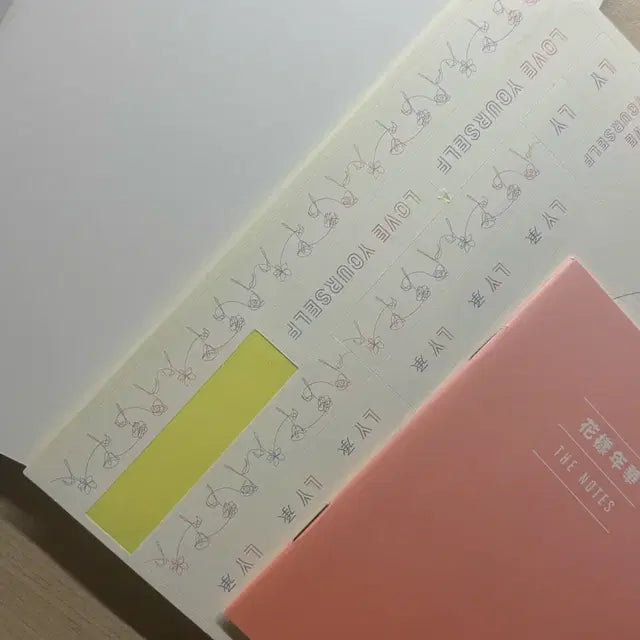 LOVE YOURSELF
LY
LY
YOURSELF
LOVE YOURSELF
LY 承
LY 承
LY 承
LY 承
LY 承
LY 承
花樣年華
THE NOTES